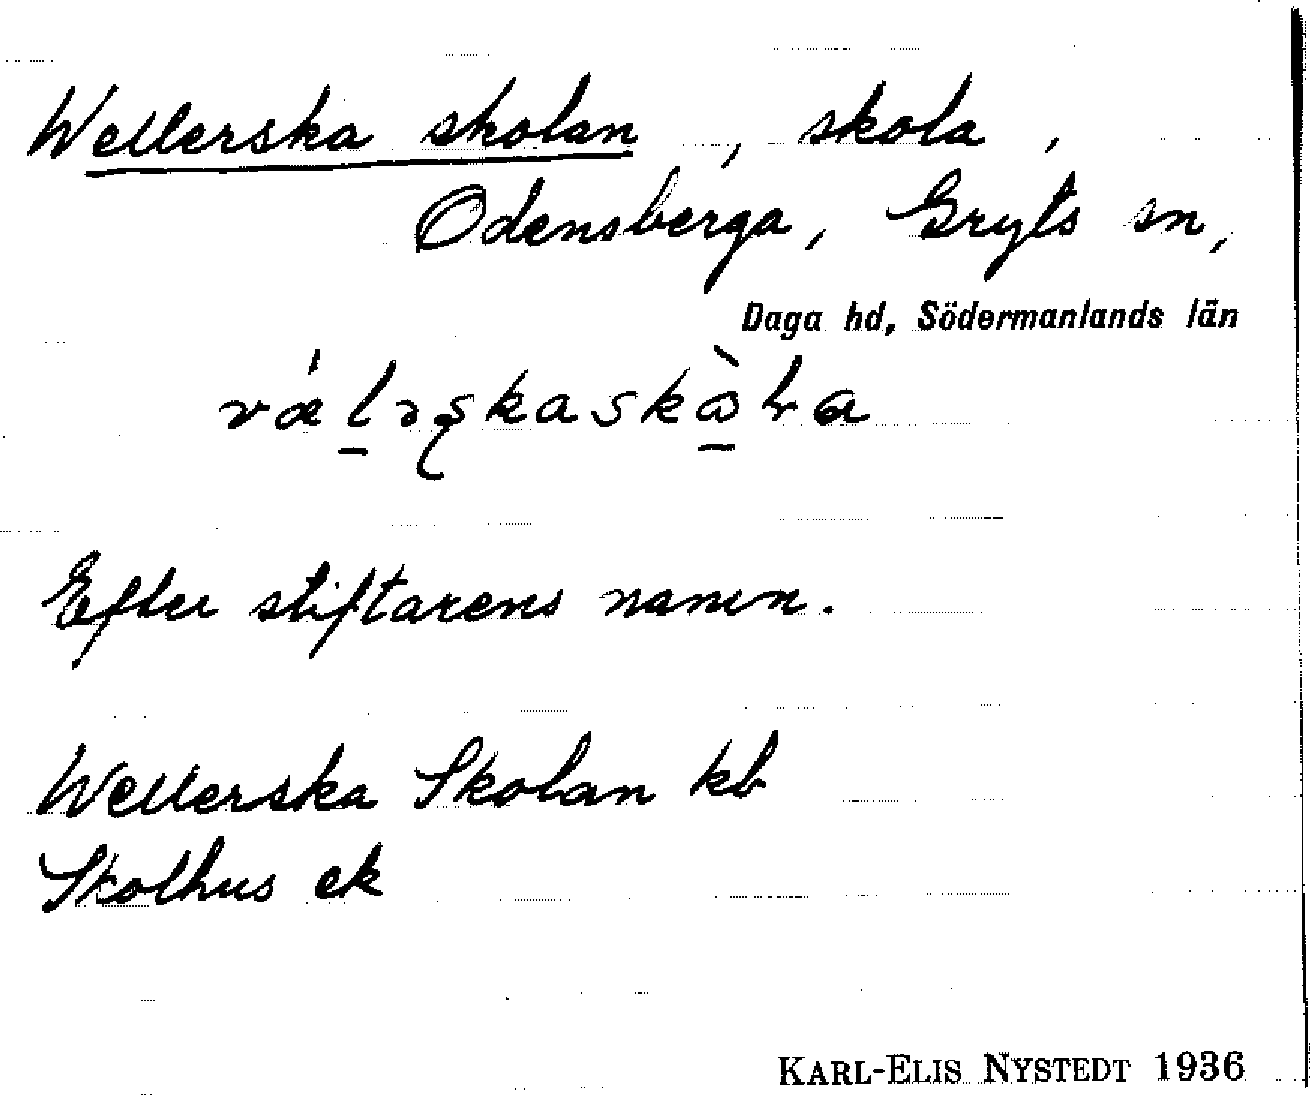 Wellerska skolan, skola,
Odensberga, Gryts sn,
Daga hd, Södermanlands län
vǽl̠əʂkaskὼ̠ɫa
Efter stiftarens namn.
Wellerska Skolan kb
Skolhus ek
KARL-ELIS NYSTEDT 1936